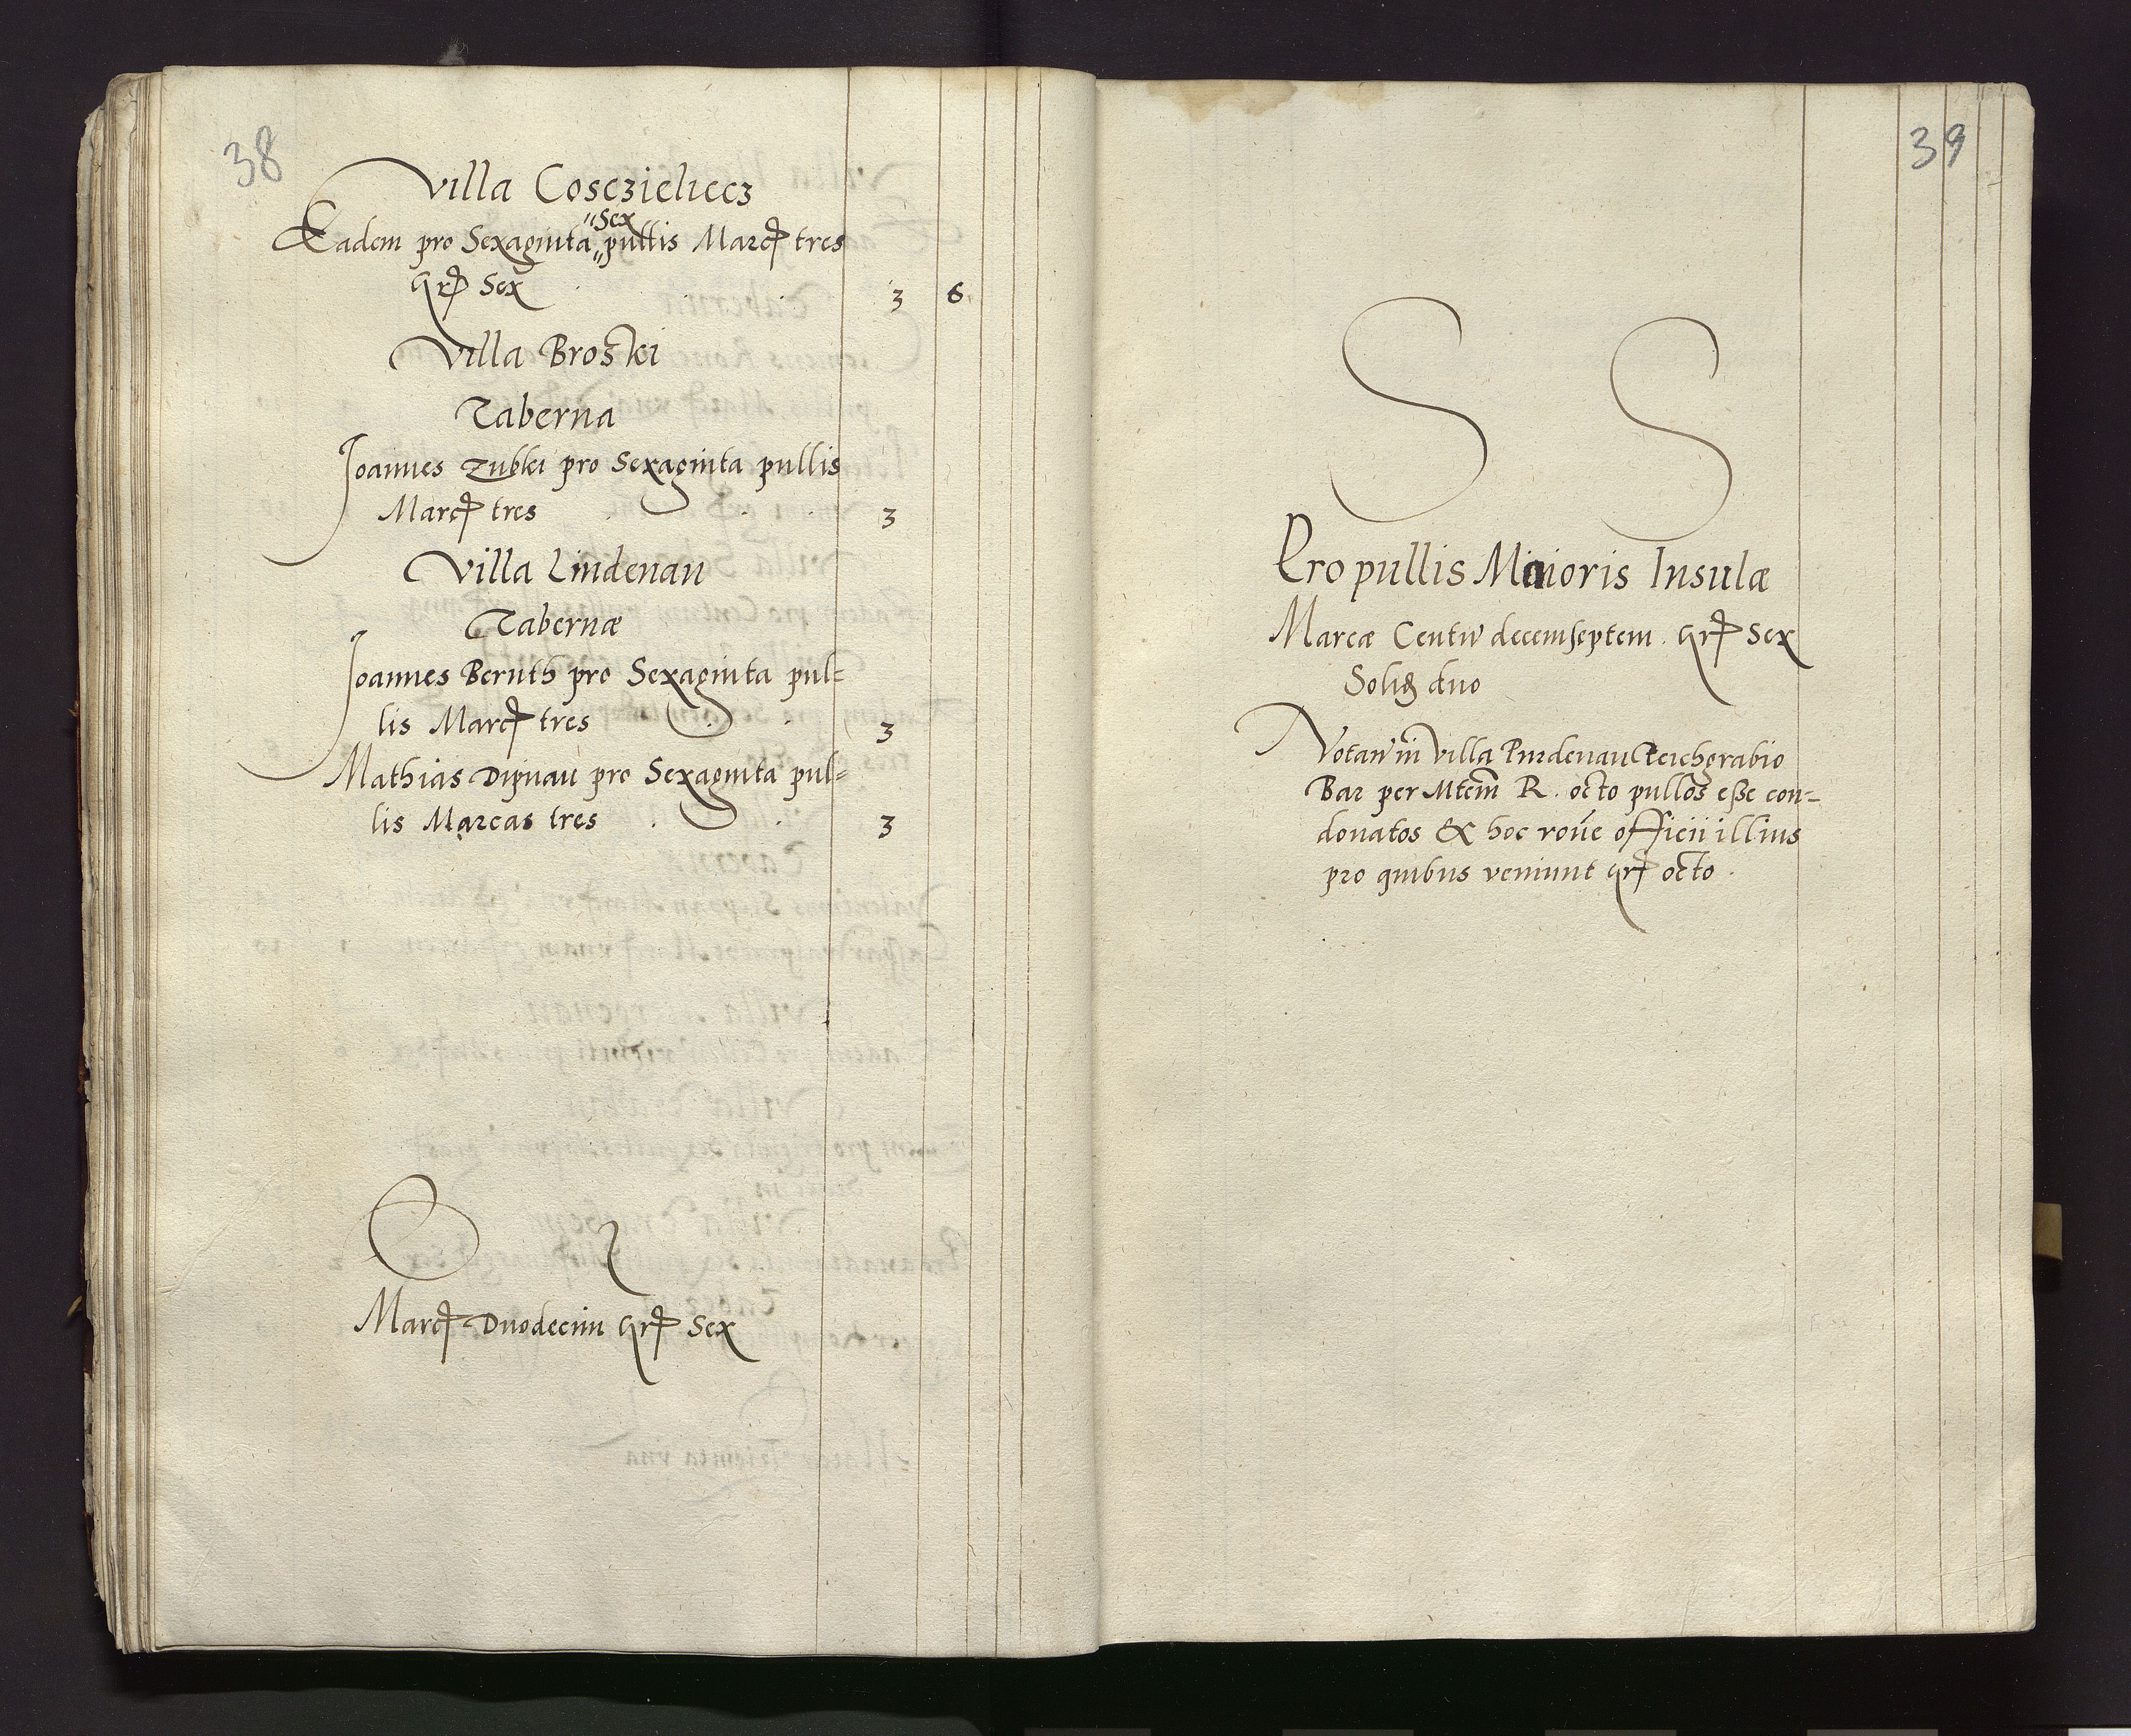 38
Villa Cosczieliecz
"Sex
Eadem pro Sexaginta „ pullis Marcꝭ tres
Grꝭ Sex . . . 3 6
Villa Broski
Taberna
Joannes Zubki pro Sexaginta pullis
Marcꝭ tres . . . 3
Villa Lindenau
Tabernæ
Joannes Beruth pro Sexaginta pul=
lis Marcꝭ tres . . 3
Mathias Dignau pro Sexaginta pul=
lis Marcas tres . . 3
Marcꝭ Duodecim Grꝭ Sex
39
S S
Pro pullis Maioris Insulæ
Marcæ Centū decemseptem . Grꝭ Sex
Solið duo
Notan̄ in Villa Purdenau Teichgrabio
Bar per Mtem̄ R. octo pullos eße con=
donatos & hoc rōne officii illius
pro quibus veniunt Grꝭ octo .